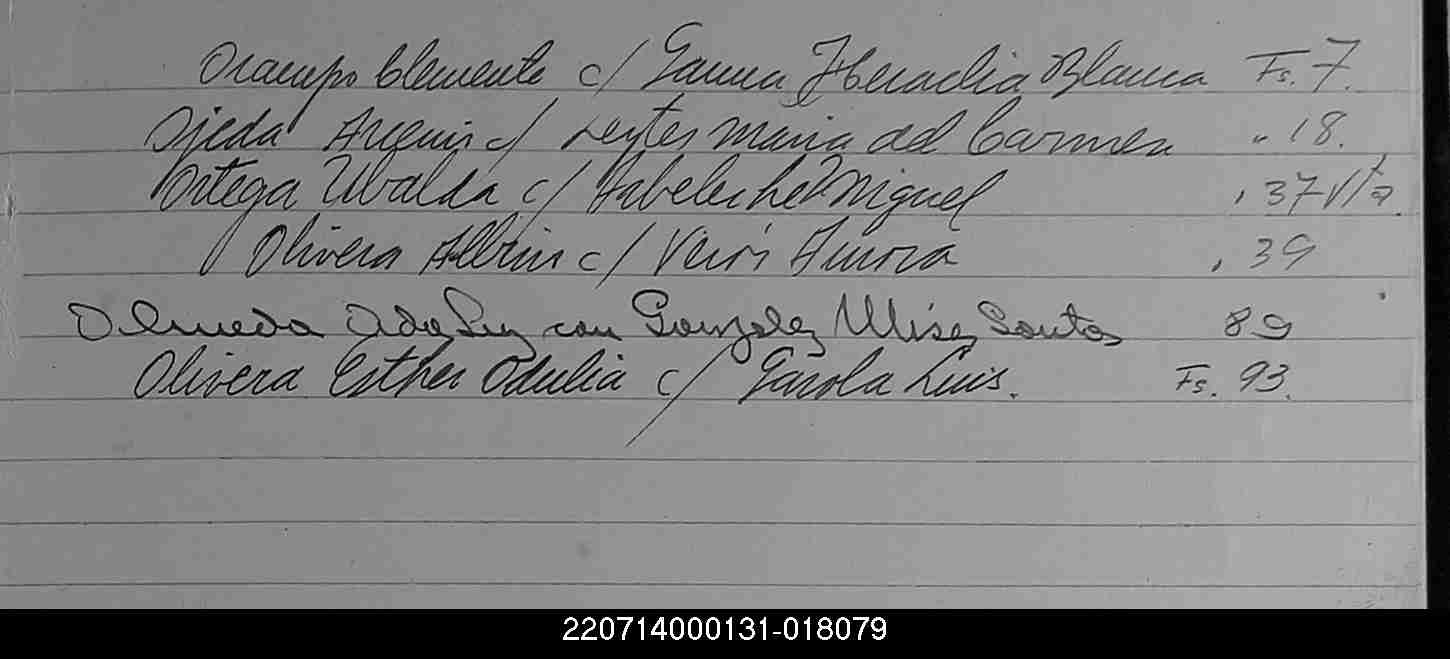 Ocampo Clemente c/ Gauna Heradia Blanca Fs. 7.
Ojeda c/ Leytes Maria del Carmen " 18.
Ortega Ubalda c/ Arbeleche Miguel , 37 Vta.
Olivera Albina c/ Verón Aurora , 39
Olmeda Ada Luz con Gonzalez Santos 89
Olivera Esther Odulia c/ Garola Luis. Fs. 93.
220714000131-018079